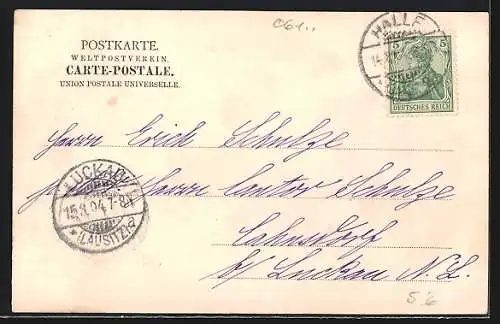 06411
POSTKARTE.
WELTPOSTVEREIN.
CARTE-POSTALE.
UNION POSTALE UNIVERSELLE.
HALLE
14.8.
5 5
DEUTSCHES REICH
Herrn Erich Schulze
Herrn Cantor Schulze
Cahnsdorf
b/ Luckau N.L.
LUCKAU
15.8.04.7-8V
* (LAUSITZ) a
S 6